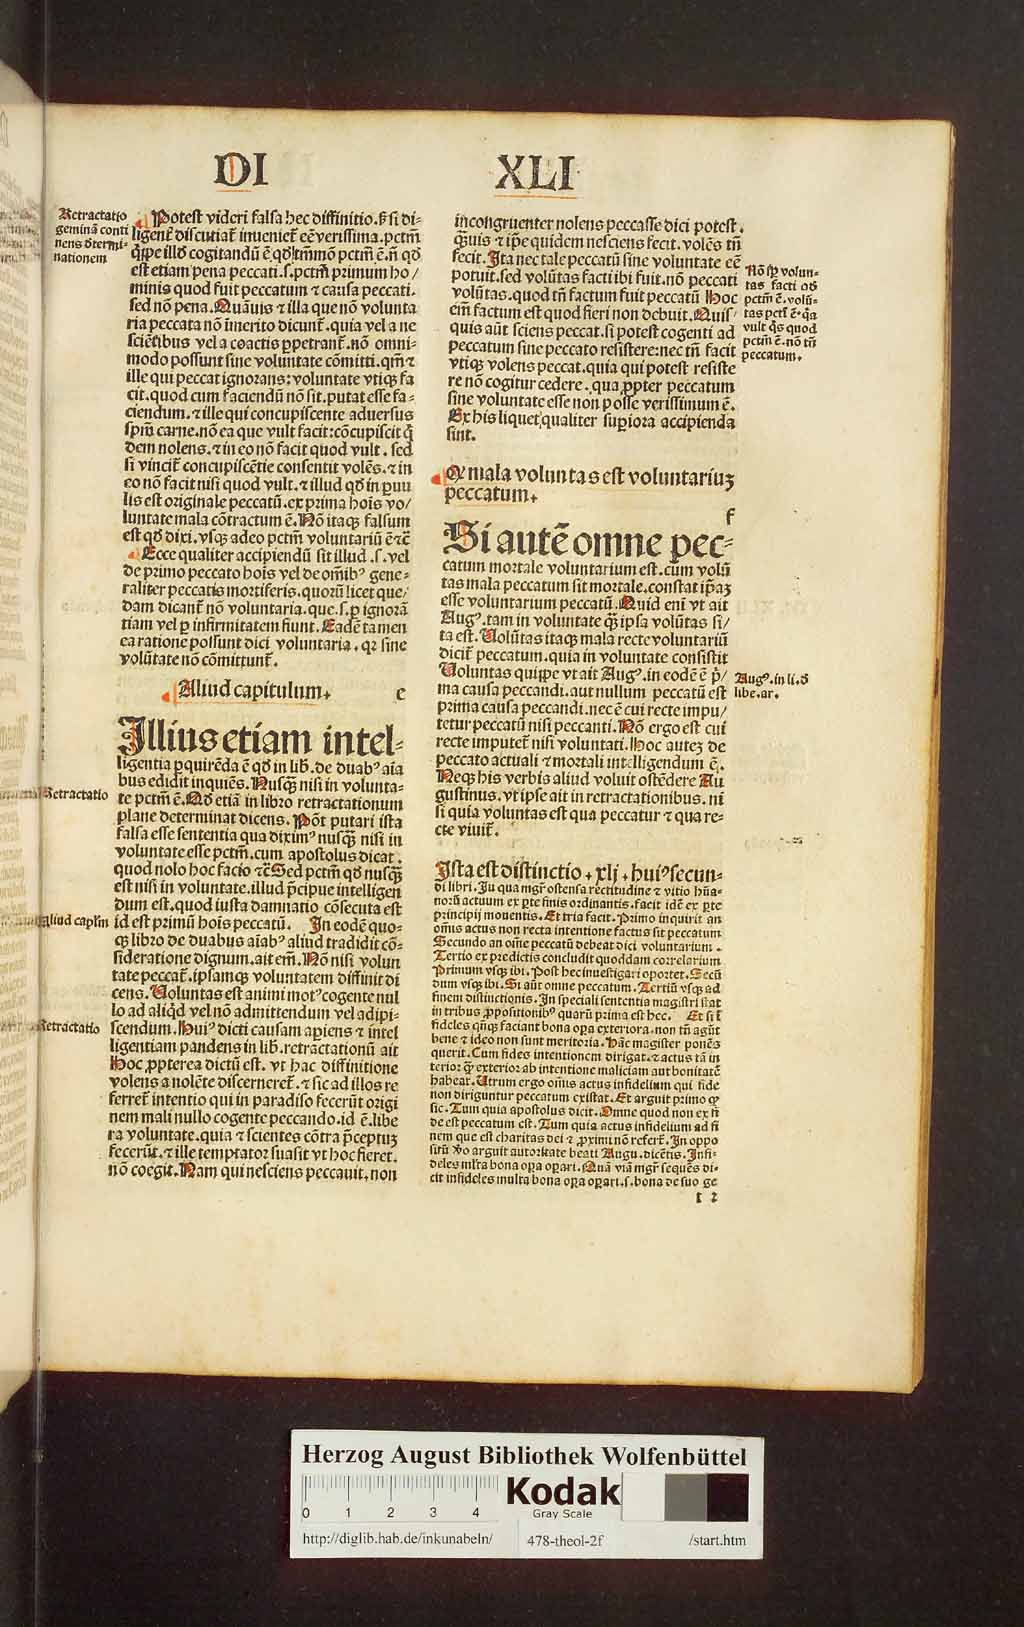 DI XLI
Retractatio
geminā conti
nens ðtermi-
nationem
Potest videri falsa hec diffinitio. s̄ si di-
ligent̄ discutiat̄ inueniet̄ eē verissima. pctm̄
q̄ipe illḋ cogitandū ē qḋ tm̄mō pctm̄ ē. n̄ qḋ
est etiam pena peccati. s. pctm̄ primum ho/
minis quod fuit peccatum ⁊ causa peccati.
sed nō pena. Quāuis ⁊ illa que nō volunta
ria peccata nō īmerito dicunt̄. quia vel a ne
sciētibus vel a coactis ꝑpetrant̄. nō omni-
modo possunt sine voluntate cōmitti. qm̄ ⁊
ille qui peccat ignorans: voluntate vtiqꝫ fa
cit. quod cum faciendū nō sit. putat esse fa-
ciendum. ⁊ ille qui concupiscente aduersus
spm̄ carne. nō ea que vult facit: cōcupiscit q̄
dem nolens. ⁊ in eo nō facit quod vult. sed
si vincit̄ concupiscētie consentit volēs. ⁊ in
eo nō facit nisi quod vult. ⁊ illud qḋ in ꝑuu
lis est originale peccatū. ex prima hoīs vo/
luntate mala cōtractum ē. Nō itaqꝫ falsum
est qḋ dixi. vsqꝫ adeo pctm̄ voluntariū ē ⁊c̄
Ecce qualiter accipiendū sit illud .s. vel
de primo peccato hoīs vel de oīmibꝰ gene-
raliter peccatis mortiferis. quorū licet que/
dam dicant̄ nō voluntaria. que .s. ꝑ ignorā
tiam vel ꝑ infirmitatem fiunt. Eadē tamen
ea ratione possunt dici voluntaria. qꝛ sine
volūtate nō cōmittunt̄.
Aliud capitulum. e
Illius etiam intel-
ligentia ꝑquirēda ē qḋ in lib̄. de duabꝰ aīa
bus edidit inquiēs. Nusqꝫ nisi in volunta-
te pctm̄ ē. Qḋ etiā in libro retractationum
plane determinat dicens. Pōt putari ista
falsa esse sententia qua diximꝰ nusqꝫ nisi in
voluntate esse pctm̄. cum apostolus dicat.
quod nolo hoc facio ⁊c̄ Sed pctm̄ qḋ nusqꝫ
est nisi in voluntate. illud p̄cipue intelligen
dum est. quod iusta damnatio cōsecuta est
id est primū hoīs peccatū. In eodē quo-
qꝫ libro de duabus aīabꝰ aliud tradidit cō-
sideratione dignum. ait em̄. Nō nisi volun
tate peccat̄. ipsamqꝫ voluntatem diffinit di
cens. Voluntas est animi motꝰ cogente nul
lo ad aliqḋ vel nō admittendum vel adipi-
scendum. Huiꝰ dicti causam aꝑiens ⁊ intel
ligentiam pandens in lib. retractationū ait
Hoc ꝓpterea dictū est. vt hac diffinitione
volens a nolēte discerneret̄. ⁊ sic ad illos re
ferret̄ intentio qui in paradiso fecerūt origi
nem mali nullo cogente peccando. id ē. libe
ra voluntate. quia ⁊ scientes cōtra p̄ceptuꝫ
fecerūt. ⁊ ille temptator suasit vt hoc fieret.
nō coegit. Nam qui nesciens peccauit. non
Retractatio
Aliud capl̄m
Retractatio
incongruenter nolens peccasse dici potest.
q̄uis ⁊ ip̄e quidem nesciens fecit. volēs tn̄
fecit. Ita nec tale peccatū sine voluntate eē
potuit. sed volūtas facti ibi fuit. nō peccati
volūtas. quod tn̄ factum fuit peccatū Hoc
em̄ factum est quod fieri non debuit. Quis/
quis aūt sciens peccat. si potest cogenti ad
peccatum sine peccato resistere: nec tn̄ facit
vtiqꝫ volens peccat. quia qui potest resiste
re nō cogitur cedere. qua ꝓpter peccatum
sine voluntate esse non posse verissimum ē.
Ex his liquet qualiter suꝑiora accipienda
sint.
Nō sꝑ volun-
tas facti aḋ
pctm̄ ē. volū-
tas pcti ē. qꝛ
vult qs̄ quod
pctm̄ ē. nō tn̄
peccatum.
Q mala voluntas est voluntariuꝫ
peccatum.
f
Si autē omne pec-
catum mortale voluntarium est. cum volū
tas mala peccatum sit mortale. constat ip̄aꝫ
esse voluntarium peccatū. Quid eni vt ait
Augꝰ. tam in voluntate q̄ ipsa volūtas si/
ta est. Volūtas itaqꝫ mala recte voluntariū
dicit̄ peccatum. quia in voluntate consistit
Voluntas quippe vt ait Augꝰ. in eodē ē p̄/
ma causa peccandi. aut nullum peccatū est
prima causa peccandi. nec ē cui recte impu/
tetur peccatū nisi peccanti. Nō ergo est cui
recte imputet̄ nisi voluntati. Hoc auteꝫ de
peccato actuali ⁊ mortali intelligendum ē.
Neqꝫ his verbis aliud voluit ostēdere Au
gustinus. vt ipse ait in retractationibus. ni
si quia voluntas est qua peccatur ⁊ qua re-
cte viuit̄.
Augꝰ. in li. ð
libe. ar.
Ista est distinctio. xlj. huiꝰ secun-
di libri. In qua mgr̄ ostensa rectitudine ⁊ vitio hūa-
norū actuum ex ꝑte finis ordinantis. facit idē ex ꝑte
principij mouentis. Et tria facit. Primo inquirit an
om̄is actus non recta intentione factus sit peccatum
Secundo an om̄e peccatū debeat dici voluntarium.
Tertio ex predictis concludit quoddam correlarium
Primum vsqꝫ ibi. Post hec inuestigari oportet. Secū
dum vsqꝫ ibi. Si aūt omne peccatum. Tertiū vsqꝫ ad
finem distinctionis. In speciali sententia magistri stat
in tribus ꝓpositionibꝰ quarū prima est hec. Et si ī
fideles qn̄qꝫ faciant bona oꝑa exteriora. non tn̄ agūt
bene ⁊ ideo non sunt meritoria. Hāc magister ponēs
querit. Cum fides intentionem dirigat. ⁊ actus tā in
terior q̄ exterior ab intentione maliciam aut bonitatē
habeat. Utrum ergo om̄is actus infidelium qui fide
non diriguntur peccatum existat. Et arguit primo ꝙ
sic. Tum quia apostolus dicit. Omne quod non ex fi
de est peccatum est. Tum quia actus infidelium ad fi
nem que est charitas dei ⁊ ꝓximi nō refert̄. In oppo
sitū v̊o arguit autoritate beati Augu. dicētis. Infi-
deles multa bona oꝑa oꝑari. Quā viā mgr̄ sequēs di-
cit infideles multa bona oꝑa oꝑari. s. bona de suo ge
t 2
Herzog August Bibliothek Wolfenbüttel
0 1 2 3 4
Kodak
Gray Scale
http://diglib.hab.de/inkunabeln/ 478-theol-2f /start.htm